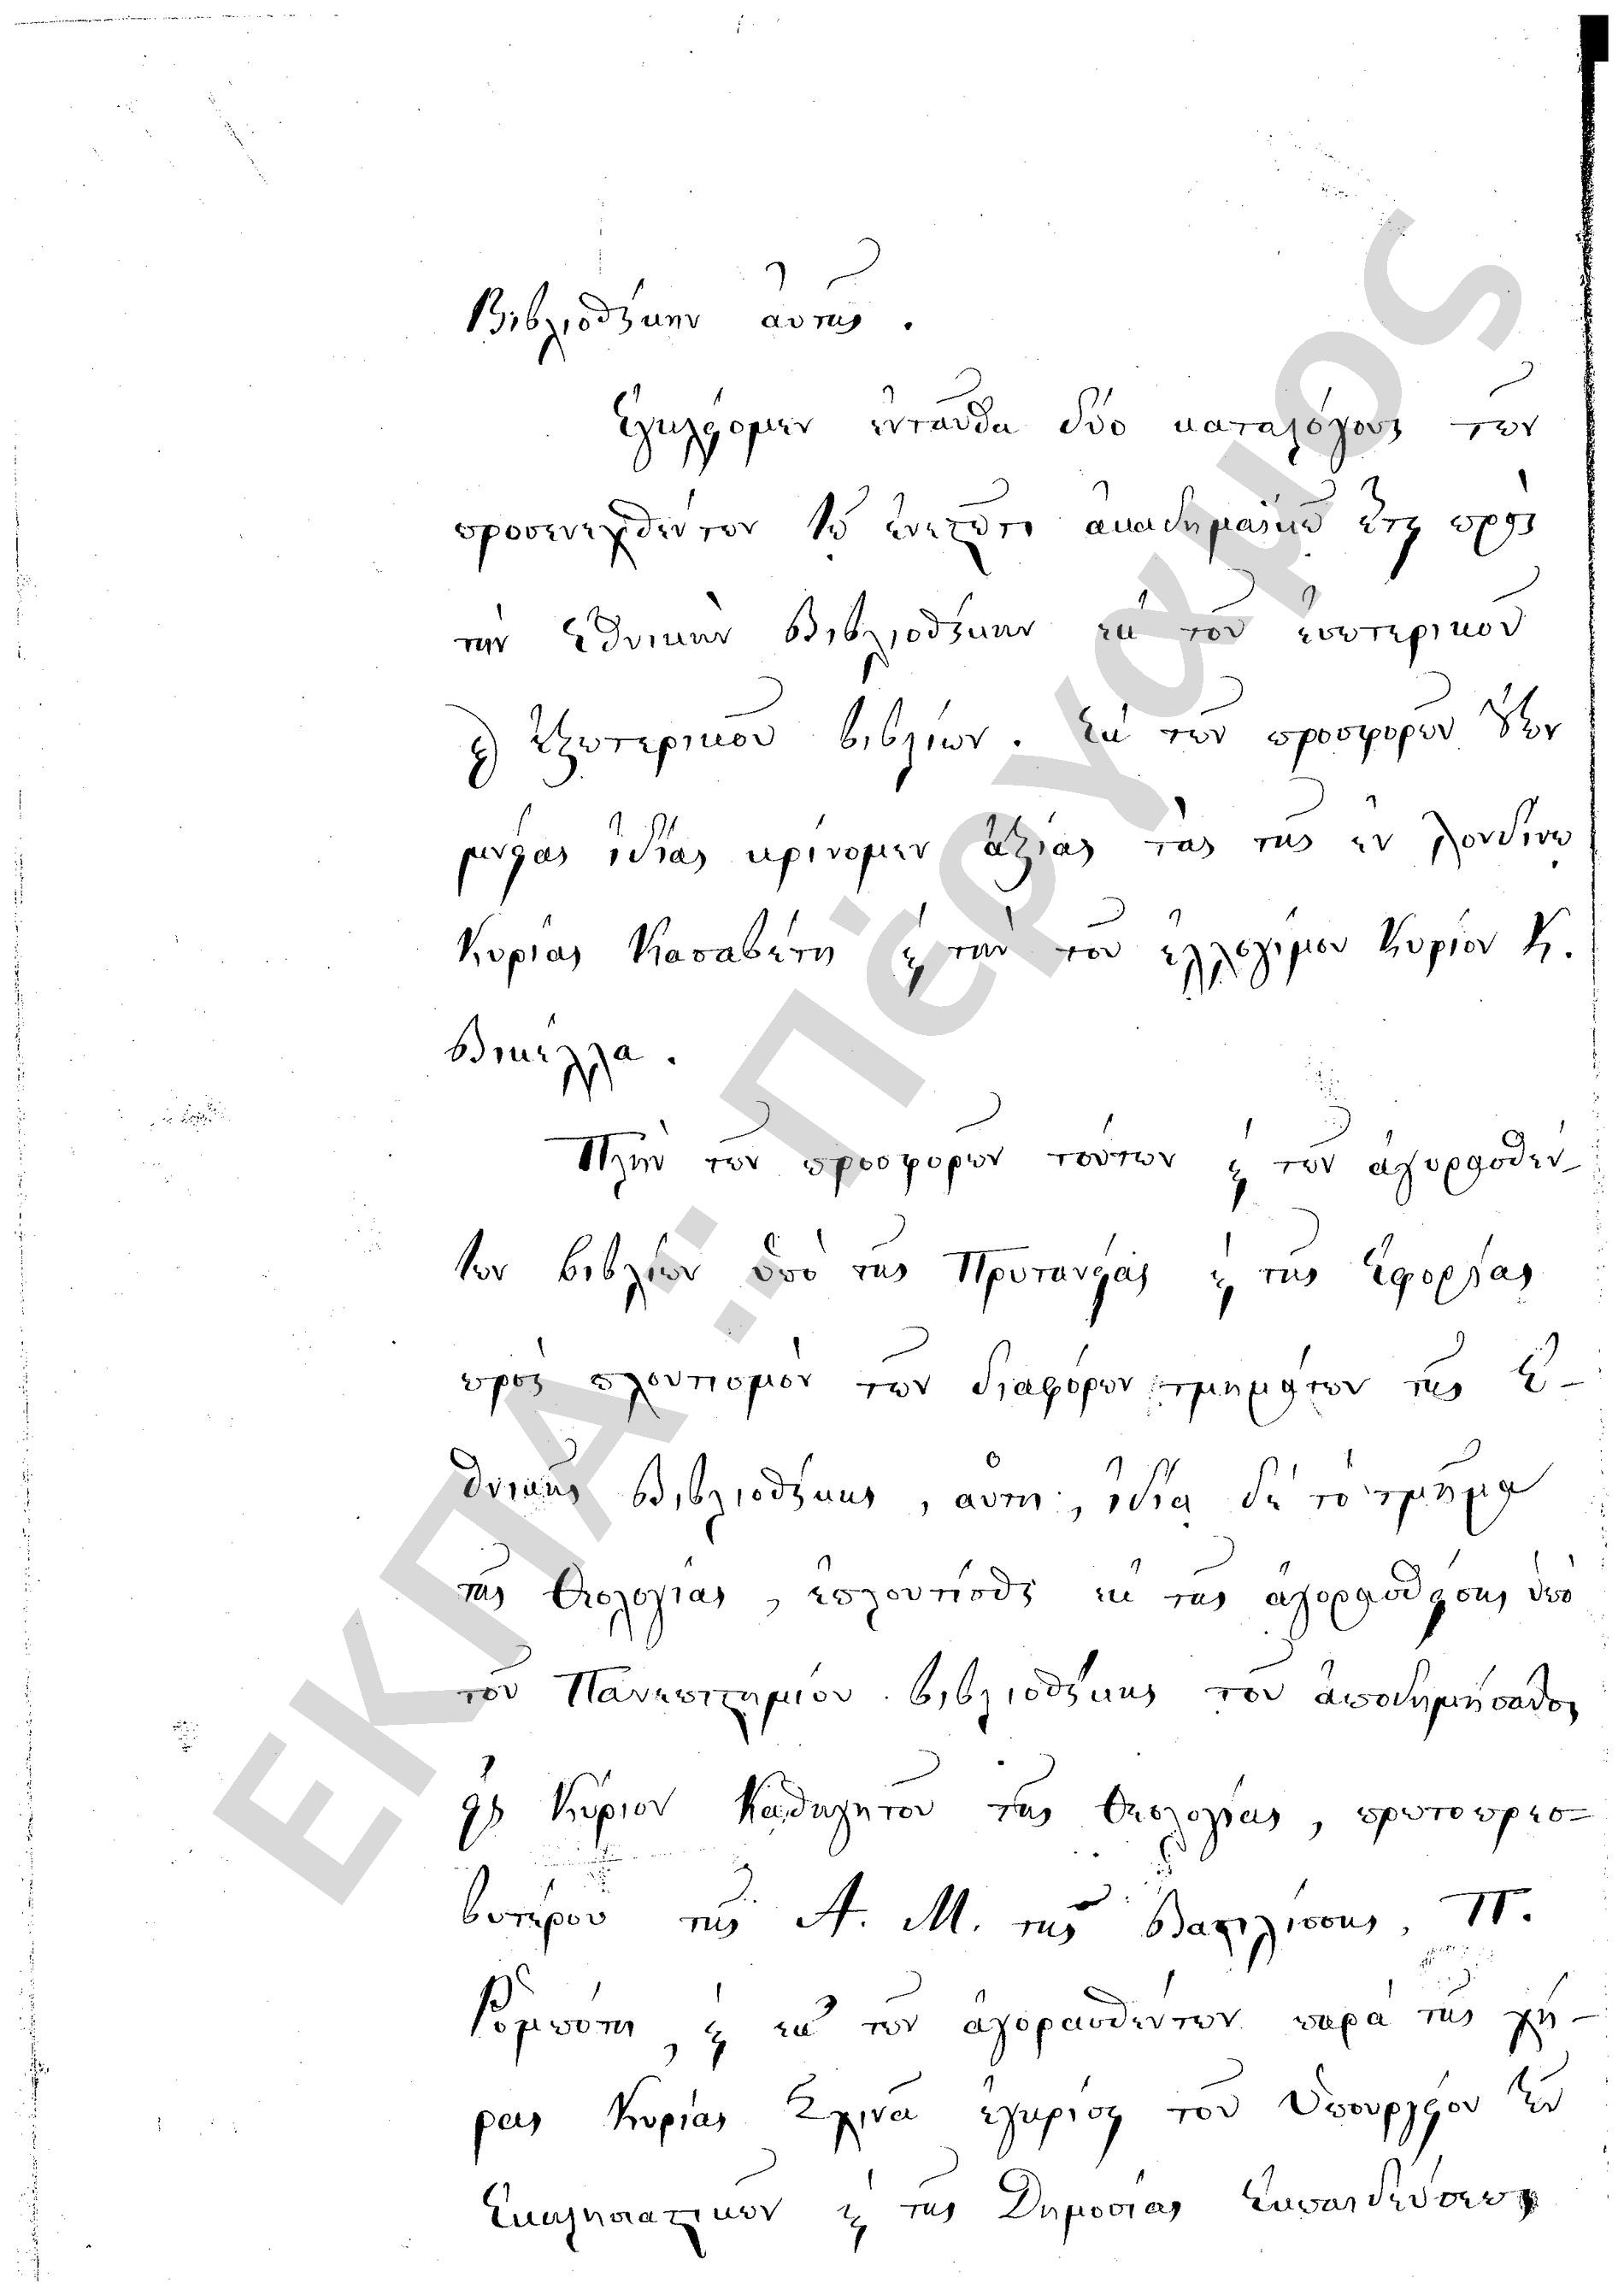 Βιβλιοθήκην αὐτῆς.
Ἐγκλείομεν ἐνταῦθα δύο καταλόγους τῶν
προσενεχθέντων τῷ ἐνεστῶτι ἀκαδημαϊκῷ ἔτει πρὸς
τὴν Ἐθνικὴν Βιβλιοθήκην ἐκ τοῦ ἐσωτερικοῦ
ϗ ἐξωτερικοῦ βιβλίων. Ἐκ τῶν προσφορῶν τούτων
μνείας ἰδίας κρίνομεν ἀξίας τὰς τῆς ἐν Λονδίνῳ
Κυρίας Κασαβέτη ϗ τὴν τοῦ ἐλλογίμου Κυρίου Κ.
Βικέλλα.
Πλὴν τῶν προσφορῶν τούτων ϗ τῶν ἀγορασθέν-
των βιβλίων ὑπὸ τῆς Πρυτανείας ϗ τῆς Ἐφορείας
πρὸς πλουτισμὸν τῶν διαφόρων τμημάτων τῆς Ἐ-
θνικῆς Βιβλιοθήκης, αὕτη, ἰδίᾳ δὲ τὸ τμῆμα
τῆς Θεολογίας, ἐπλουτίσθη ἐκ τῆς ἀγορασθείσης ὑπὸ
τοῦ Πανεπιστημίου βιβλιοθήκης τοῦ ἀποδημήσαντος
εἰς Κύριον Καθηγητοῦ τῆς Θεολογίας, πρωτοπρεσ-
βυτέρου τῆς Α. Μ. τῆς Βασιλίσσης, Π.
Ῥομπότη, ϗ ἐκ τῶν ἀγορασθέντων παρὰ τῆς χή-
ρας Κυρίας Σχινᾶ ἐγκρίσει τοῦ Ὑπουργείου τῶν
Ἐκκλησιαστικῶν ϗ τῆς Δημοσίας Ἐκπαιδεύσεως
ΕΚΠΑ: Πέργαμος